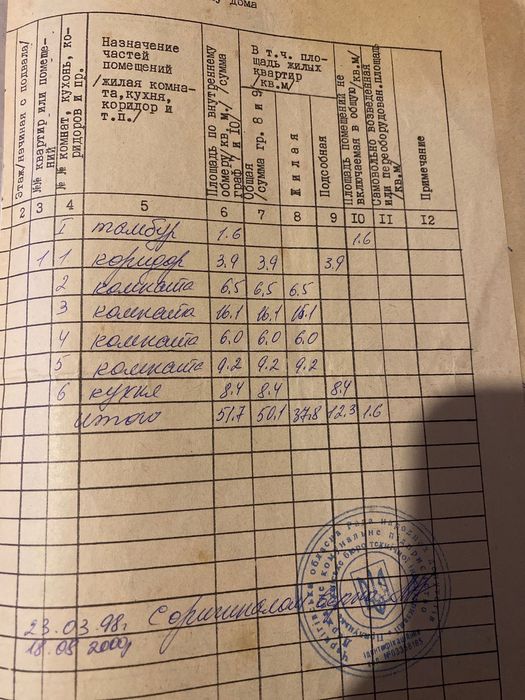 дома
Этаж/начиная с подвала/
№№ квартир или помещений
№№ комнат, кухонь, коридоров и пр.
Назначение частей помещений /жилая комната, кухня, коридор и т.п./
Площадь по внутреннему обмеру/кв.м./ /сумма граф 7 и 10/
В т.ч. площадь жилых квартир /кв.м/
Общая /сумма гр. 8 и 9/
Жилая
Подсобная
Площадь помещений не включаемая в общую/кв.м/
Самовольно возведенная или переоборудован.площадь /кв.м/
Примечание
2 3 4 5 6 7 8 9 10 11 12
I тамбур 1.6 1.6
1 1 коридор 3.9 3.9 3.9
2 комната 6.5 6,5 6.5
3 комната 16.1 16.1 16.1
4 комната 6.0 6.0 6.0
5 комната 9.2 9.2 9.2
6 кухня 8.4 8.4 8.4
итого 51.7 50.1 37.8 12.3 1.6
С оригиналом верно
23.03.98г.